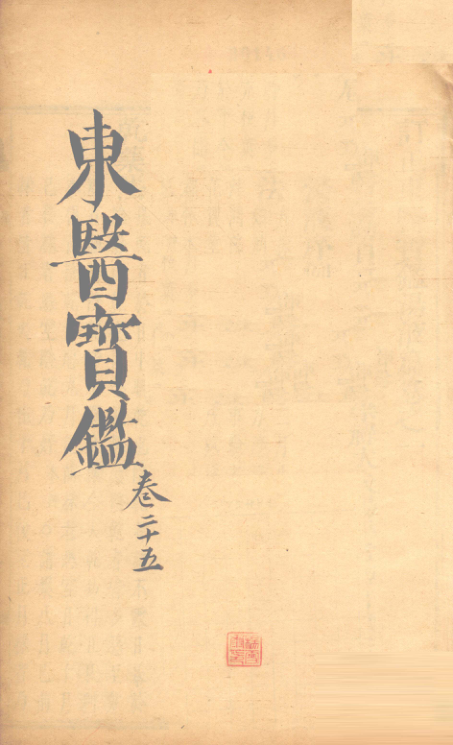 東醫寶鑑
卷二十五